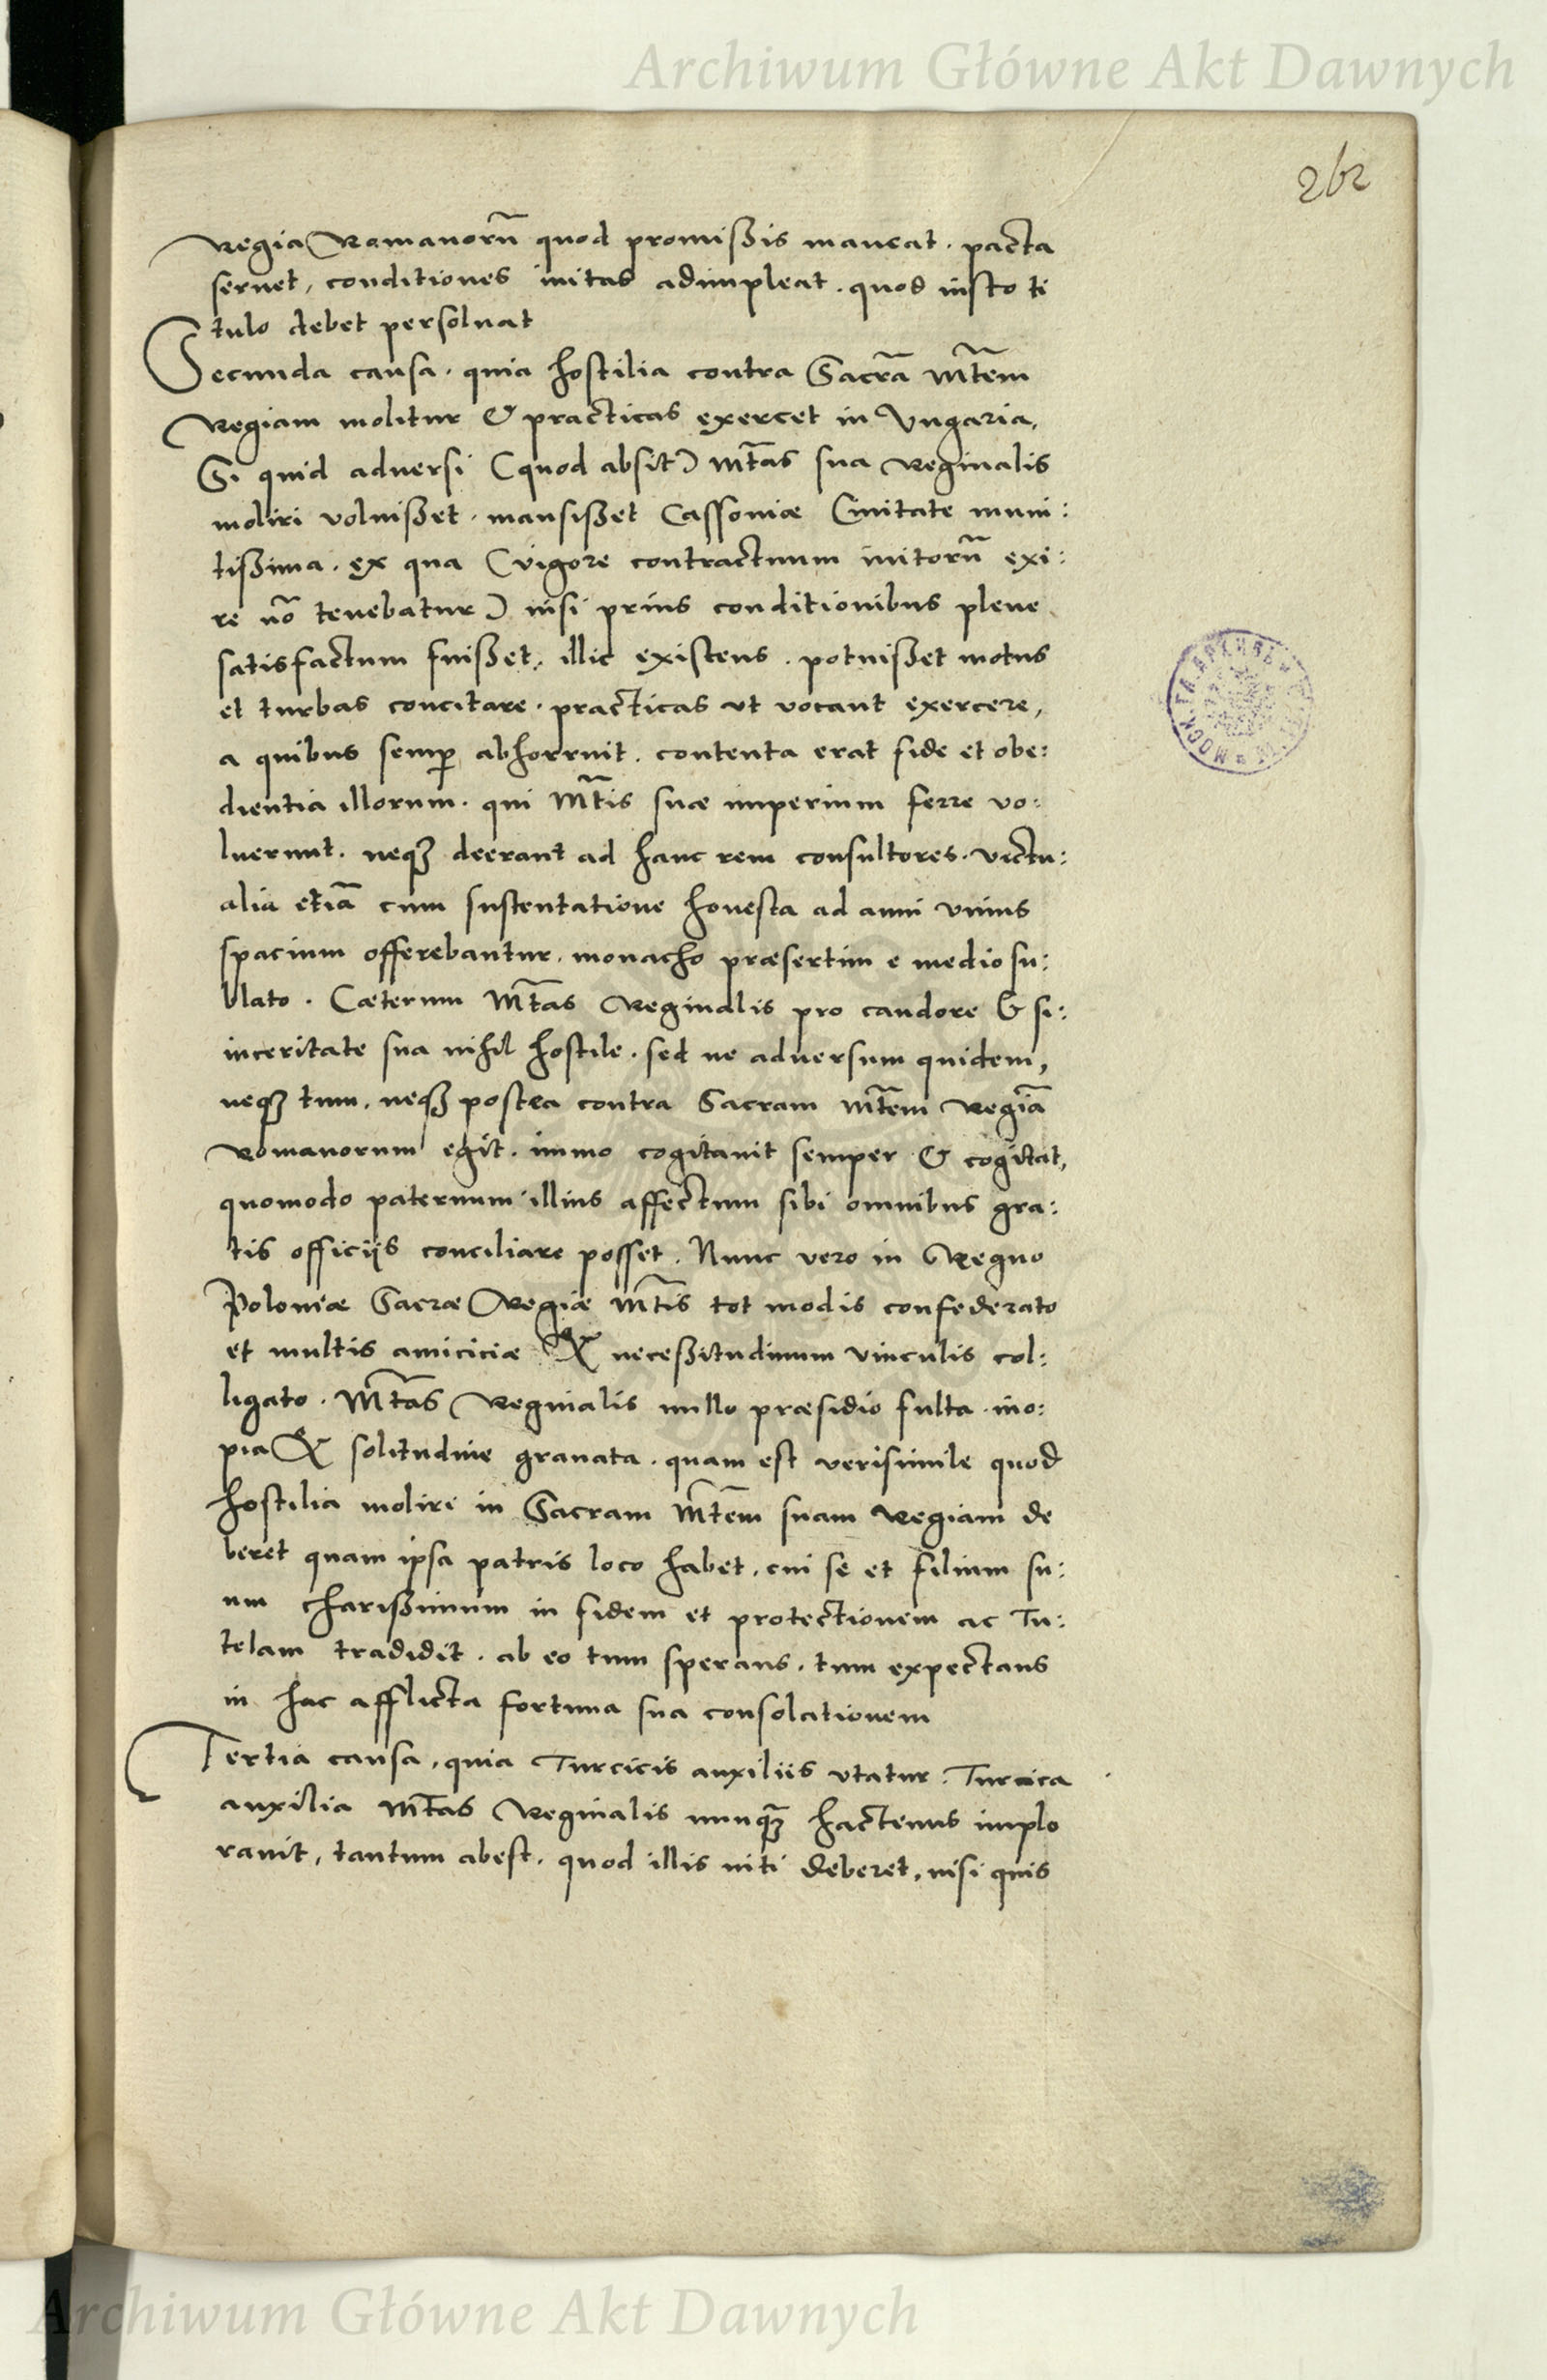 Archiwum Główne Akt Dawnych
262
Regia Romanorũ quod promißis maneat. pacta
seruet, conditiones initas adimpleat. quod iusto ti
tulo debet persoluat
Secunda causa. quia hostilia contra Sacrã Mt̃em
Regiam molitur & practicas exercet in Vngaria,
Si quid aduersi (quod absit) Mt̃as sua Reginalis
moliri voluißet. mansißet Cassoviæ Ciuitate muni:
tißima. ex qua (vigore contractuum initorũ exi:
re nõ tenebatur) nisi prius conditionibus plene
satisfactum fuißet, illic existens. potuißet motus
et turbas concitare. practicas vt vocant exercere,
a quibus semꝑ abhorruit. contenta erat fide et obe:
dientia illorum. qui Mt̃is suæ imperium ferre vo:
luerunt. neqꝫ deerant ad hanc rem consultores. victu:
alia etiã cum sustentatione honesta ad anni vnius
spacium offerebantur. monacho præsertim e medio su:
blato. Cæterum Mt̃as Reginalis pro candore & si:
inceritate sua nihil hostile. sed ne aduersum quidem,
neqꝫ tum. neqꝫ postea contra Sacram Mt̃em Regiã
Romanorum egit. immo cogitauit semper & cogitat,
quomodo paternum illius affectum sibi omnibus gra:
tis officijs conciliare posset. Nunc vero in Regno
Poloniæ Sacræ Regiæ Mt̃is tot modis confederato
et multis amiciciæ & neceßitudinum vinculis col:
ligato. Mt̃as Reginalis nullo præsidio fulta. ino:
pia & solitudine grauata. quam est verisimile quod
hostilia moliri in Sacram Mt̃em suam Regiam de
beret quam ipsa patris loco habet, cui se et filium su:
um charißimum in fidem et protectionem ac Tu:
telam tradidit. ab eo tum sperans. tum expectans
in hac afflicta fortuna sua consolationem
Tertia causa. quia Turcicis auxiliis vtatur. Turcica
auxilia Mt̃as Reginalis nunqꝫ̃ hactenus implo
rauit, tantum abest. quod illis niti deberet, nisi quis
Archiwum Główne Akt Dawnych